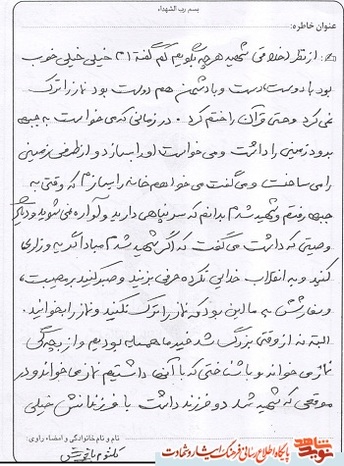 بسم رب الشهداء
عنوان خاطره:
از نظر اخلاقی شهید هر چه بگویم کم گفته ام خیلی خیلی خوب
بود با دوست دوست و با دشمن هم دوست بود نماز را ترک
نمی کرد و حتی قرآن را ختم کرد. در زمانی که می خواست به جبهه
برود زمینی را داشت و می خواست او را بسازد و از طرفی زمینی
را می ساخت و می گفت می خواهم خانه را بسازم که وقتی به
جبهه رفتم و شهید شدم بدانم که سر پناهی دارید و آواره نمی شوید و دیگر
وصیتی که داشت می گفت که اگر شهید شدم مبادا گریه و زاری
کنید و به انقلاب خدایی نکرده حرفی بزنید و صبر کنید بر مصیبت،
و سفارشش به ما این بود که نماز را ترک نکنید و نماز را بخوانید.
البته نه از وقتی بزرگ شد همسایه بودیم و از بچگی
نماز می خواند و با شناختی که با آن داشتیم نماز می خواند و در
موقعی که شهید شد دو فرزند داشت با فرزندانش خیلی
نام و نام خانوادگی و امضاء راوی:
کلثوم
نوید شاهد
پایگاه اطلاع رسانی فرهنگ ایثار و شهادت